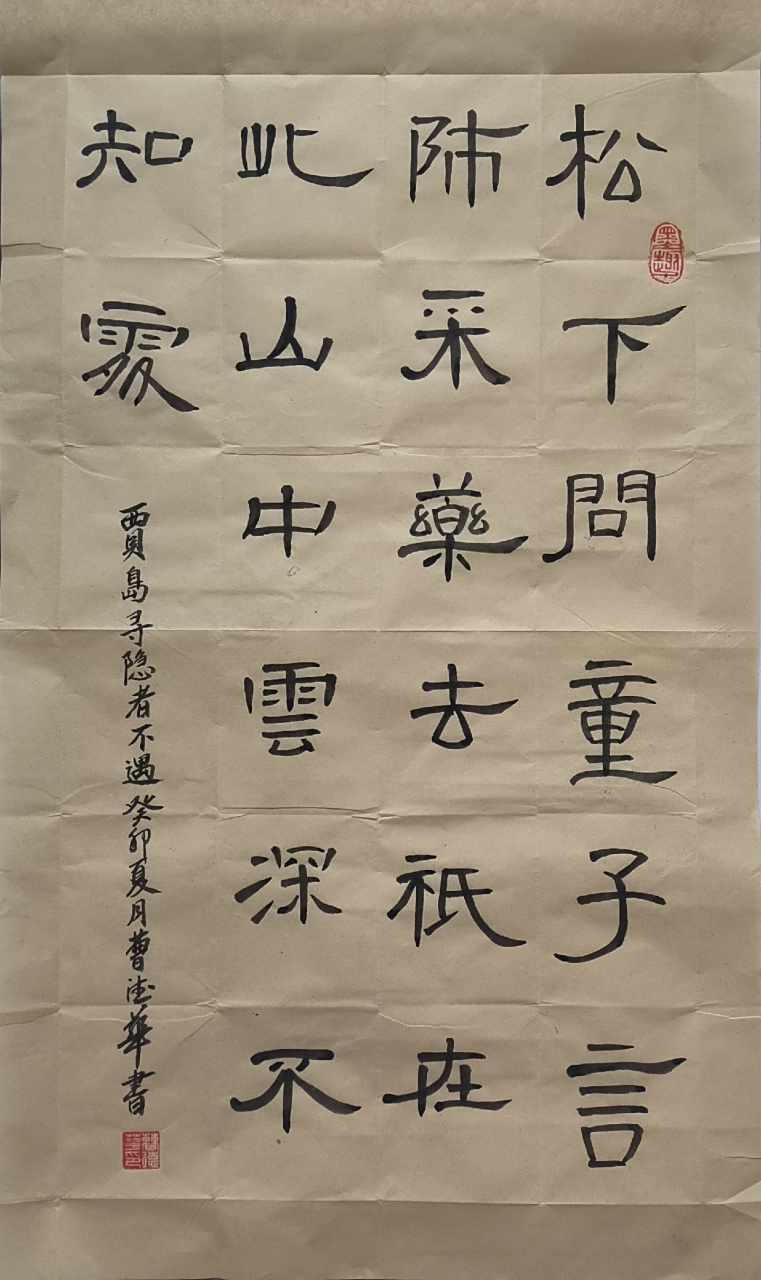 松下問童子言
師采藥去祇在
此山中雲深不
知處
賈島寻隐者不遇癸卯夏月曹德華書
墨趣
曹德華印